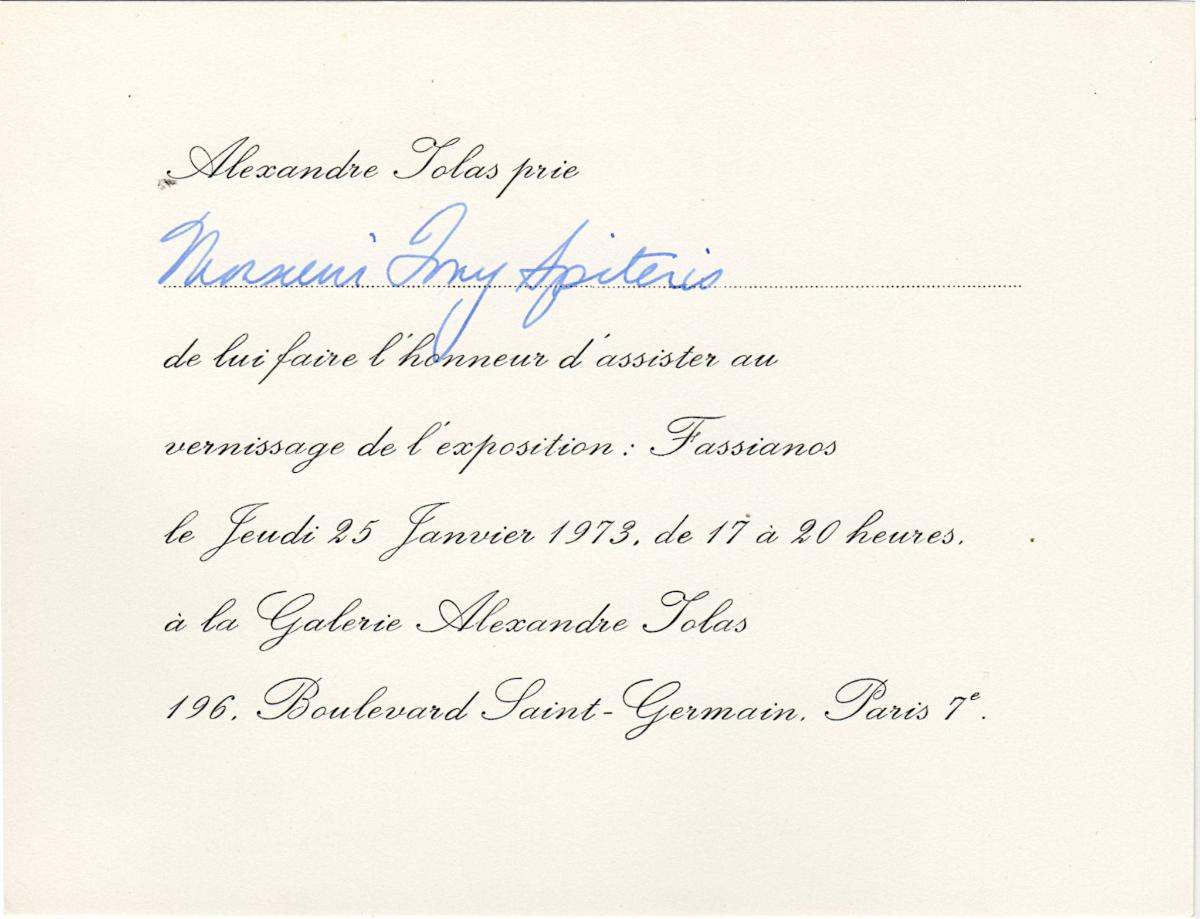 Alexandre Iolas prie
Monsieur Tony Spiteris
de lui faire l'honneur d'assister au
vernissage de l'exposition : Fassianos
le Jeudi 25 Janvier 1973, de 17 à 20 heures,
à la Galerie Alexandre Iolas
196, Boulevard Saint-Germain, Paris 7e.